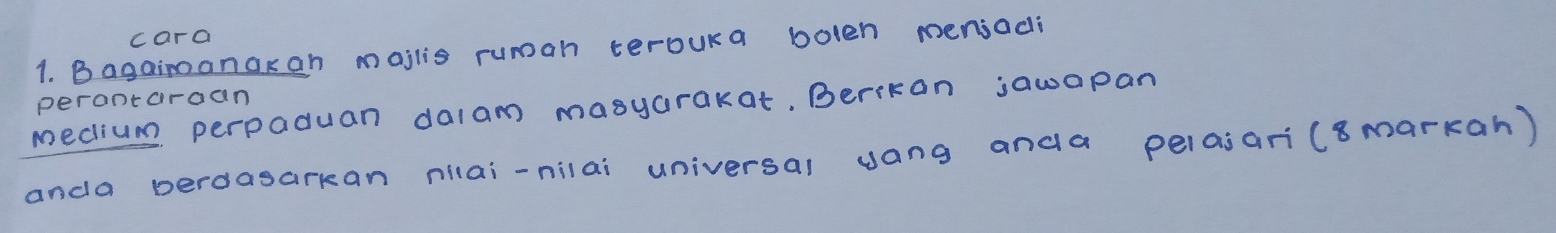 cara
1. Bagaimanakah majlis rumah terbuka boleh menjadi
perantaraan
medium perpaduan dalam masyarakat. Berikan jawapan
anda berdasarkan nilai-nilai universal yang anda pelajari (8 markah)